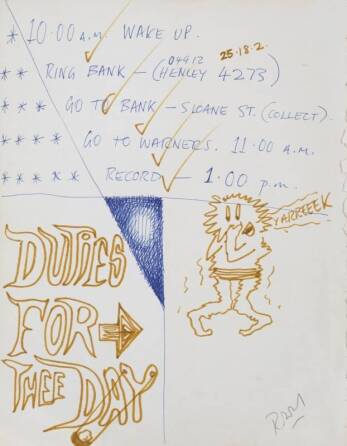 * 10·00 a.m. WAKE UP.
04912 25·18·2.
** RING BANK – (HENLEY 4273)
*** GO TO BANK – SLOANE ST. (COLLECT).
**** GO TO WARNERS. 11·00 A.M.
***** RECORD – 1·00 p.m.
YARREEEK
DUTIES
FOR
THEE DAY